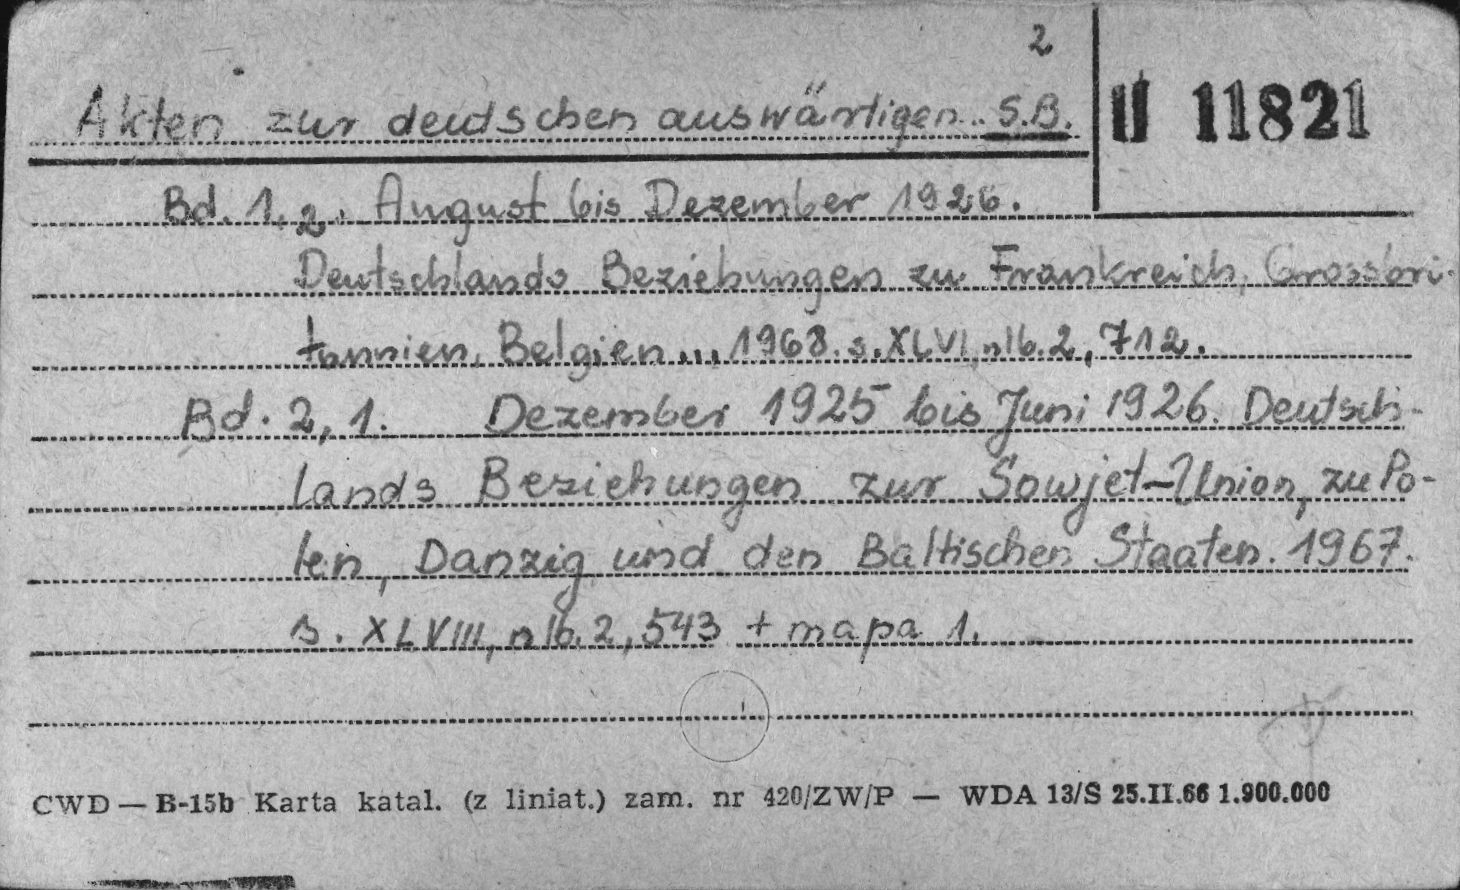 2
Akten zur deutschen auswärtigen... S.B.
II 11821
Bd. 1, 2. August bis Dezember 1926.
Deutschlands Beziehungen zu Frankreich, Grossbri-
tannien, Belgien... 1968. s. XLVI, nlb. 2, 712.
Bd. 2, 1. Dezember 1925 bis Juni 1926. Deutsch-
lands Beziehungen zur Sowjet-Union, zu Po-
len, Danzig und den Baltischen Staaten. 1967.
s. XLVIII, nlb. 2, 543 + mapa 1.
CWD — B-15b Karta katal. (z liniat.) zam. nr 420/ZW/P — WDA 13/S 25.II.66 1.900.000